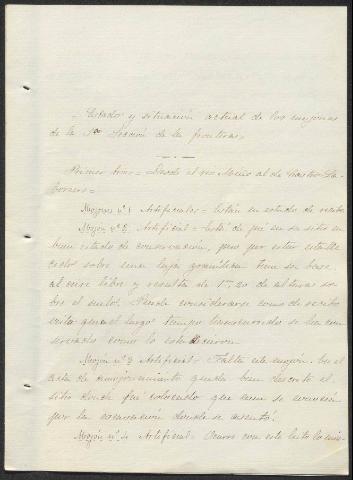 = Estado y situación actual de los mojones
de la 1ª Sección de la frontera =
Primer trozo = Desde el río Miño al de Castro La-
boreiro =
Mojon nº 1 Artificial = Está en estado de recibo
Mojón nº 2 Artificial = Está de pié en su sitio en
buen estado de conservación, pero por estar estable
cido sobre una laja granítica tiene su base
al aire libre y resulta de 1m,20 de altura so-
bre el suelo. Puede considerarse como de recibo
visto que el largo tiempo transcurrido se ha con
servado como lo esta ahora.
Mojón nº 3 Artificial = Falta este mojón. En el
acta de amojonamiento queda bien descrito el
sitio donde fué colocado que aun se
por la donde se asentó.
Mojón nº 4 Artificial = Ocurre con este hito lo mis-